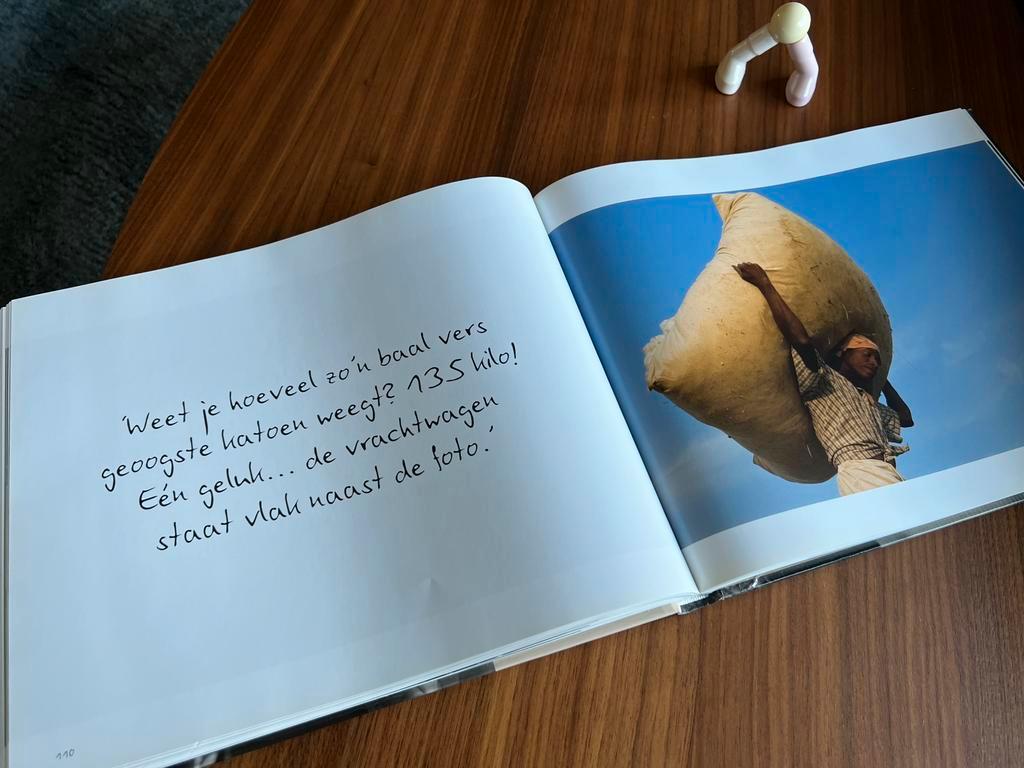 'Weet je hoeveel zo'n baal vers
geoogste katoen weegt? 135 kilo!
Eén geluk... de vrachtwagen
staat vlak naast de foto.'
110